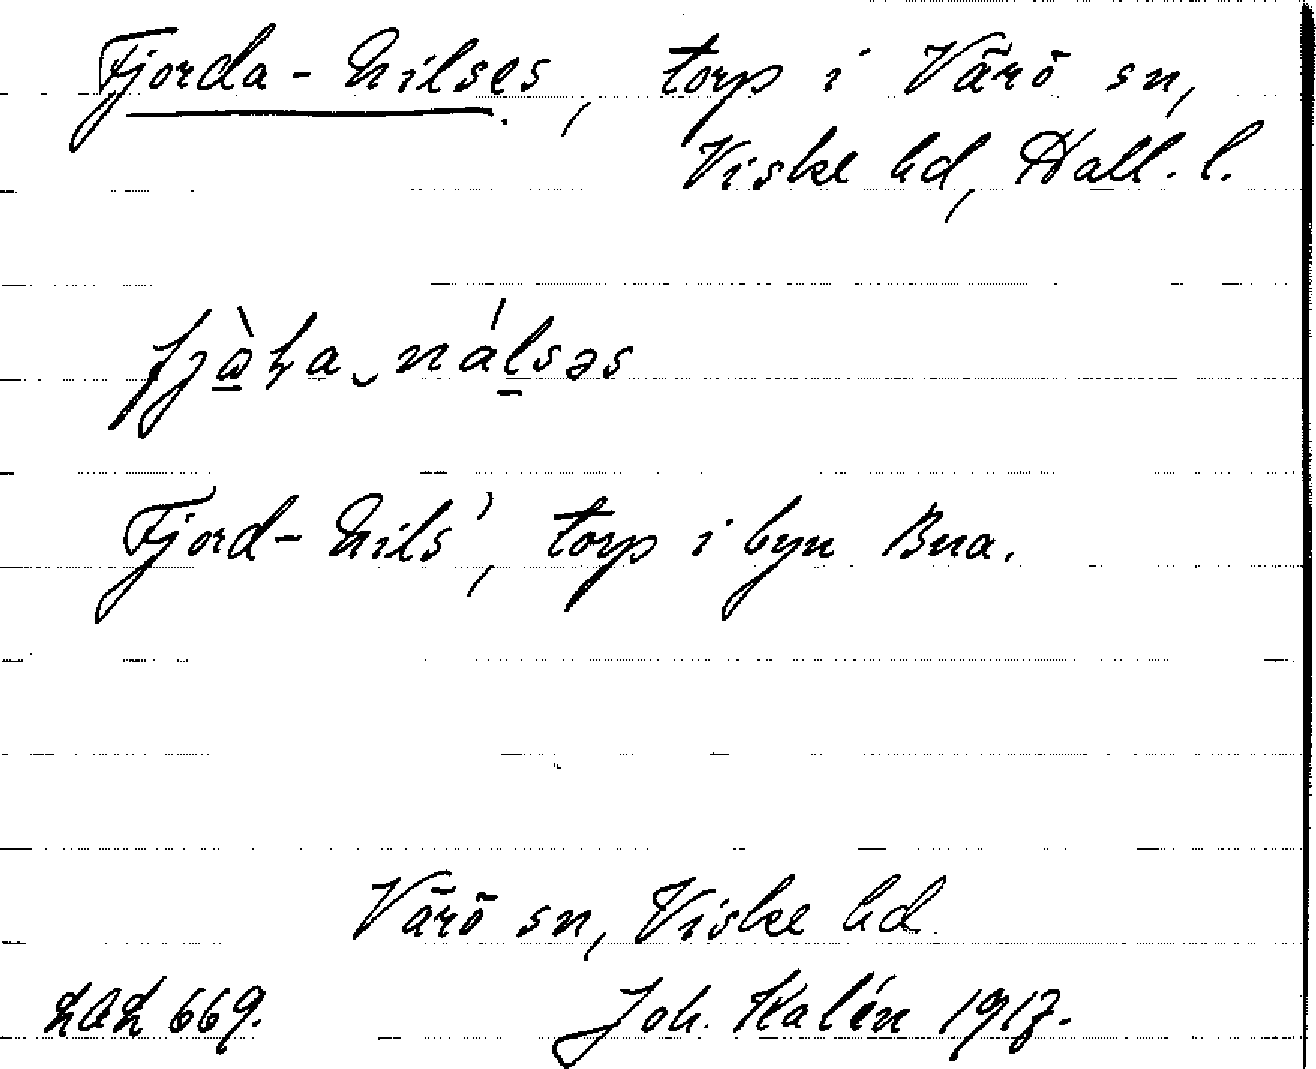 Fjorda-Nilses, torp i Värö sn,
Viske hd, Hall. l.
Fjord-Nils', torp i byn Bua.
Värö sn, Viske hd.
LAL 669. Joh. Kalén 1917.